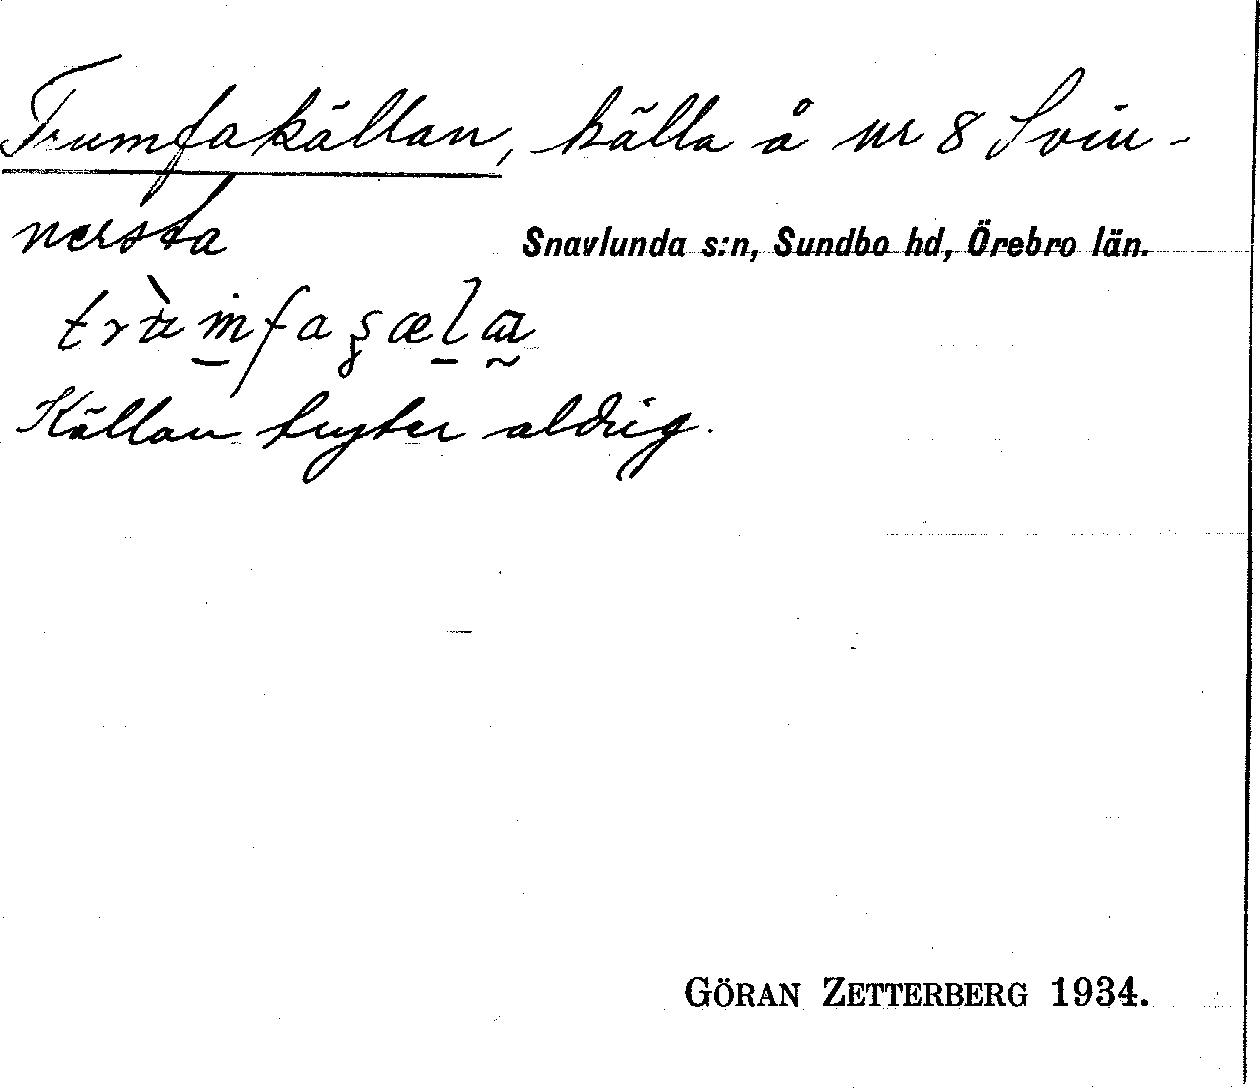 Trumfakällan, källa å nr 8 Svin-
nersta
Snavlunda s:n, Sundbo hd, Örebro län.
Källan tryter aldrig.
GÖRAN ZETTERBERG 1934.